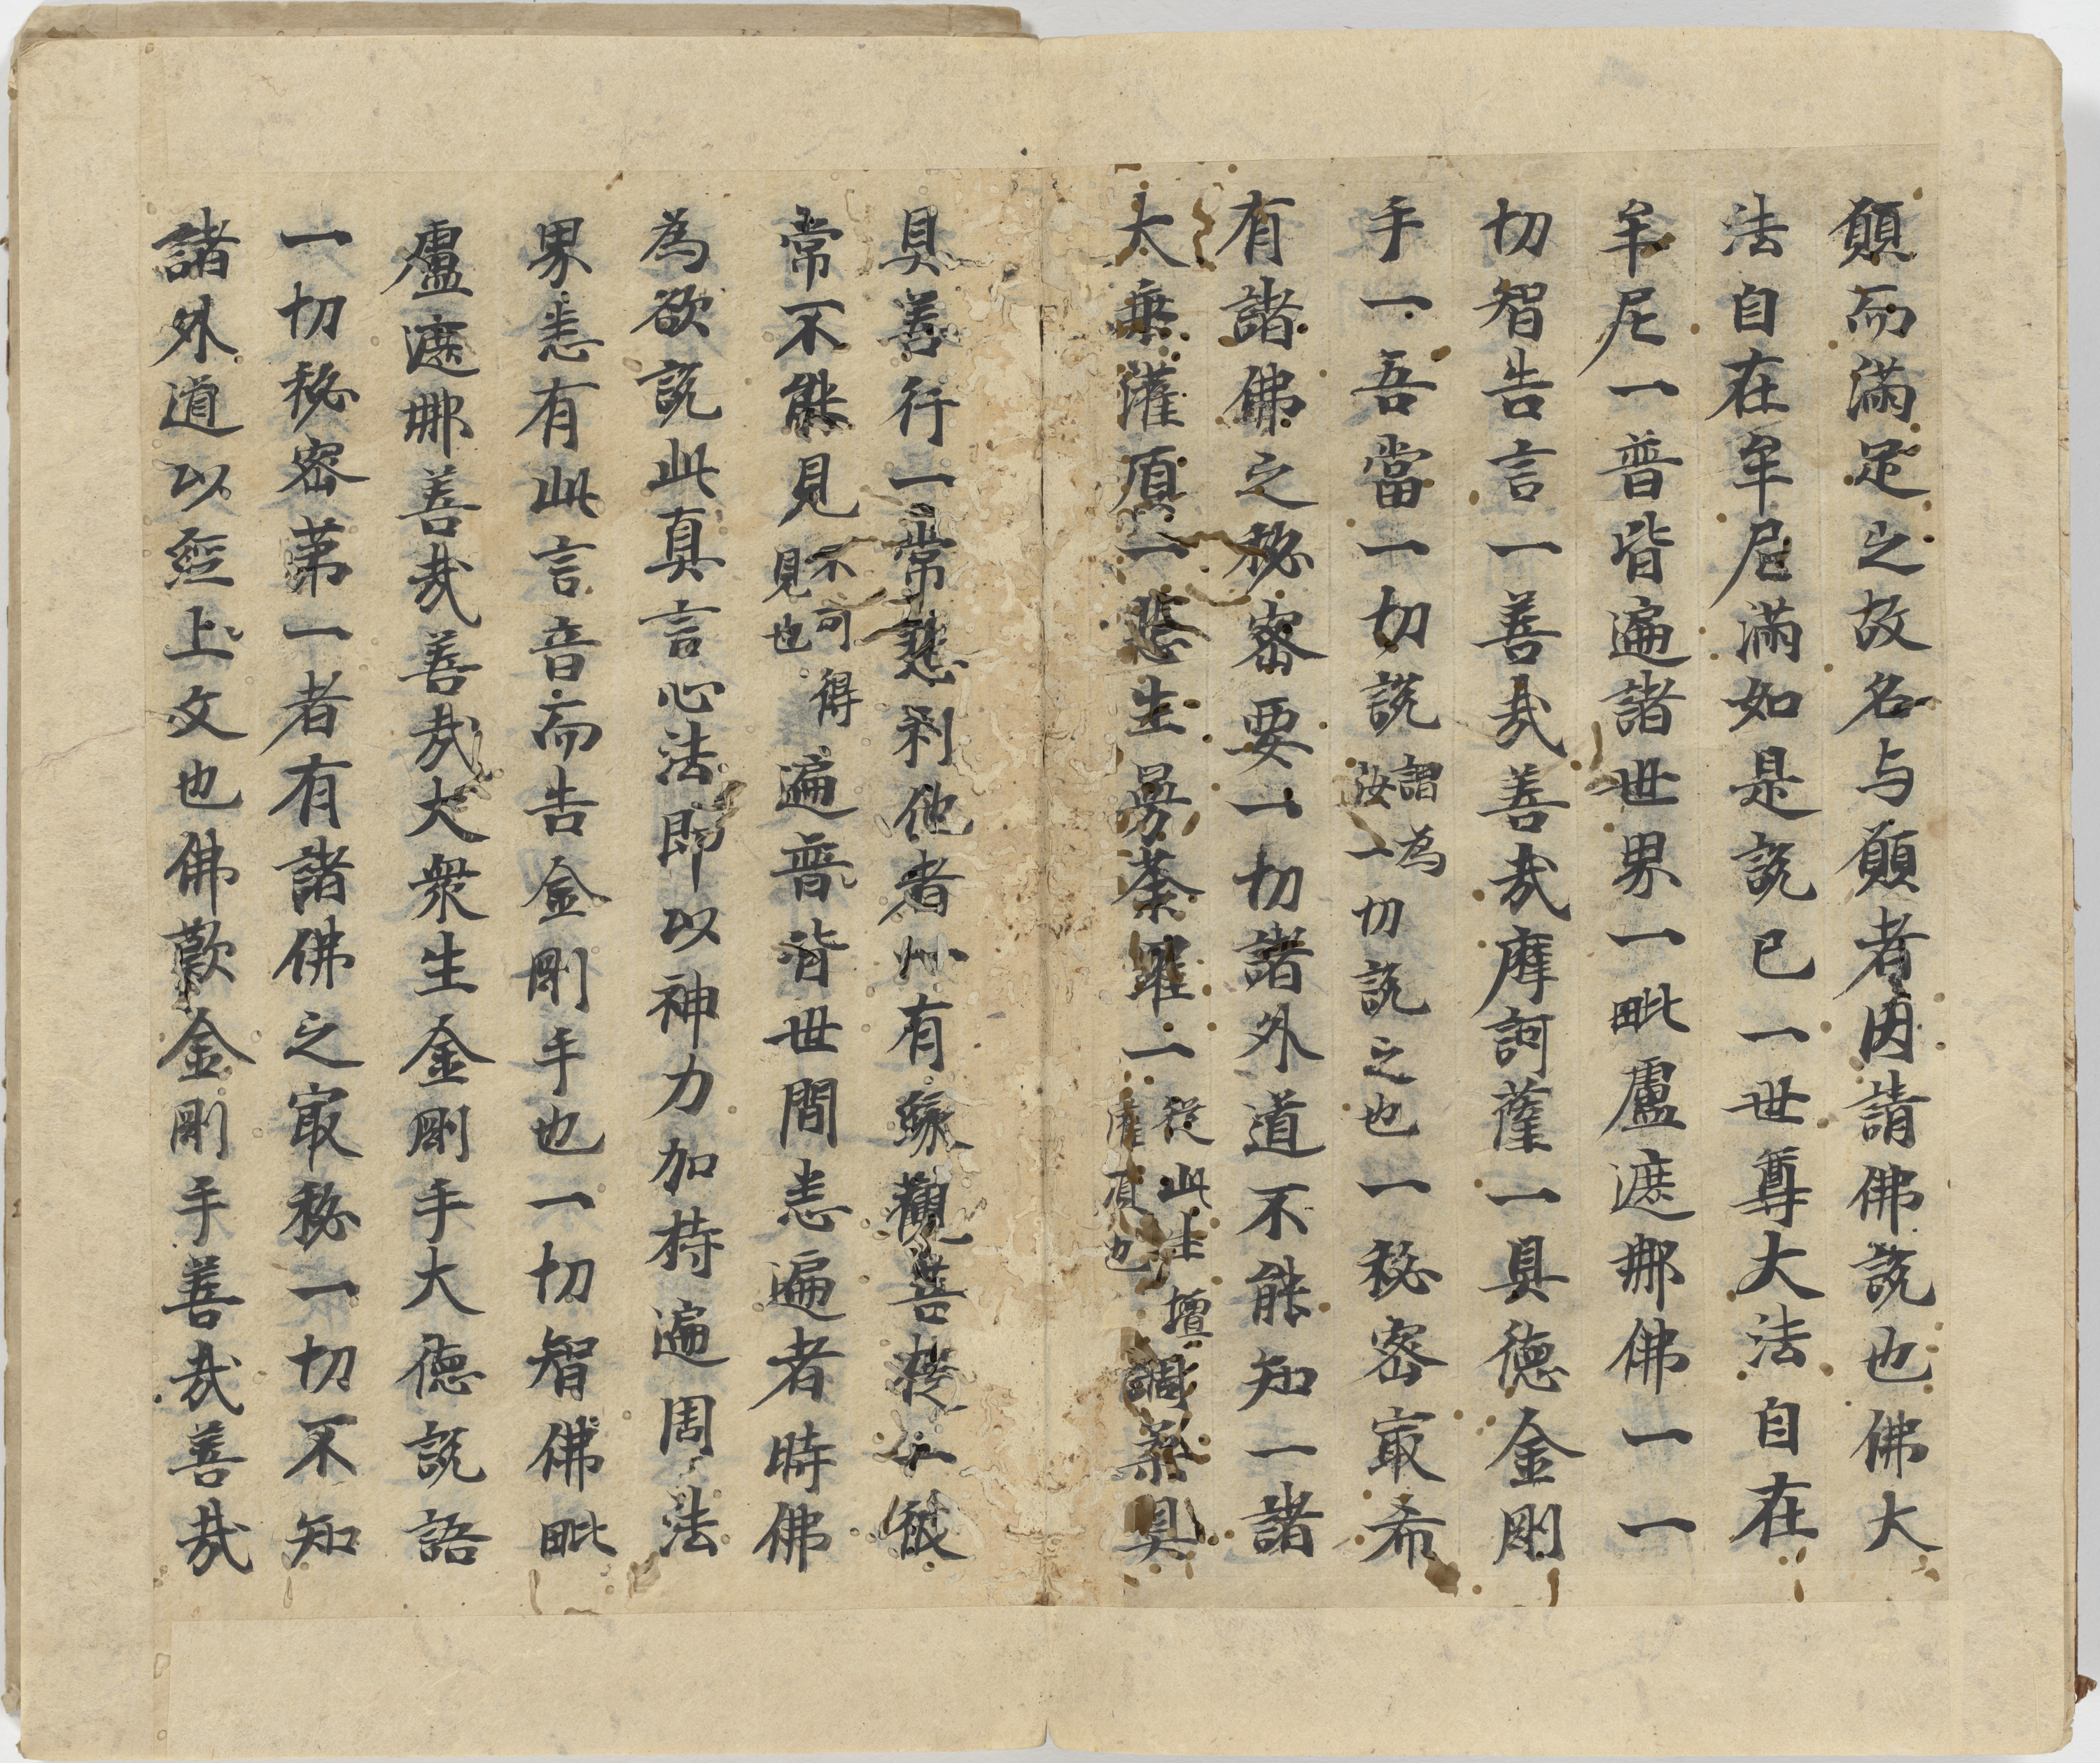 願而滿足之故名与願者因請佛説也佛大
法自在牟尼滿如是説已一世尊大法自在
牟尼一普皆遍諸世界一毗盧遮那佛一一
切智告言一善哉善哉摩訶薩一具德金剛
手一吾當一切説謂為汝一切説之也一秘密㝡希
有諸佛之秘密要一切諸外道不能知一諸
大乗灌頂一悲生曼荼羅一從此上壇灌頂也調柔具
具善行一常悲利他者有縁觀菩提一彼
常不能見不可得見也遍普皆世間悉遍者時佛
為欲説此真言心法即以神力加持遍周法
界悉有此言音而告金剛手也一切智佛毗
盧遮那善哉善哉大衆生金剛手大德説語
一切秘密苐一者有諸佛之㝡秘一切不知
諸外道以經上文也佛歎金剛手善哉善哉